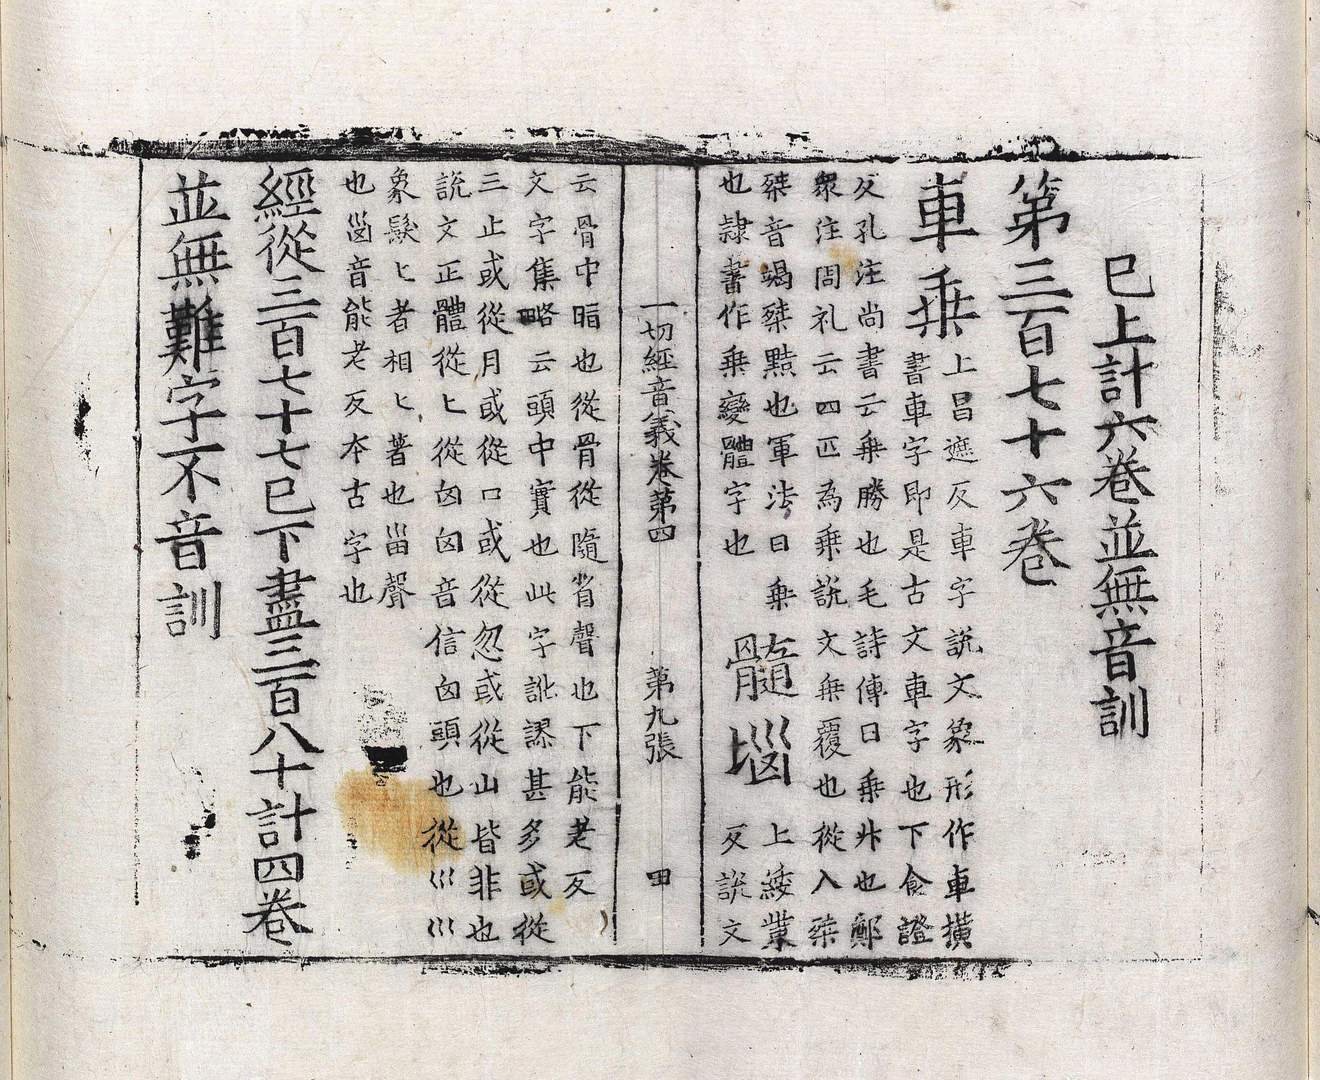 已上計六卷並無音訓
第三百七十六卷
車乗
上昌遮反車字說文象形作車擯
書車字即是古文車字也下食證
反孔注尚書云乗勝也毛詩傳曰乗升也鄭
衆注周礼云四匹為乗說文椉覆也從入桀
桀音竭桀黠也軍法曰乗
也隷書作乗變體字也
髓𭘾
上綏藂
反說文
一切經音義卷第四 第九張 田
云骨中脂也從骨從隨省聲也下能老反
文字集略云頭中實也此字訛謬甚多或從
三止或從月或從口或從忽或從山皆非也
說文正體從匕從囟囟音信囟頭也從巛巛
象髮匕者相匕著也𡿺聲
也𡿺音能老反本古字也
經從三百七十七已下盡三百八十計四卷
並無難字不音訓